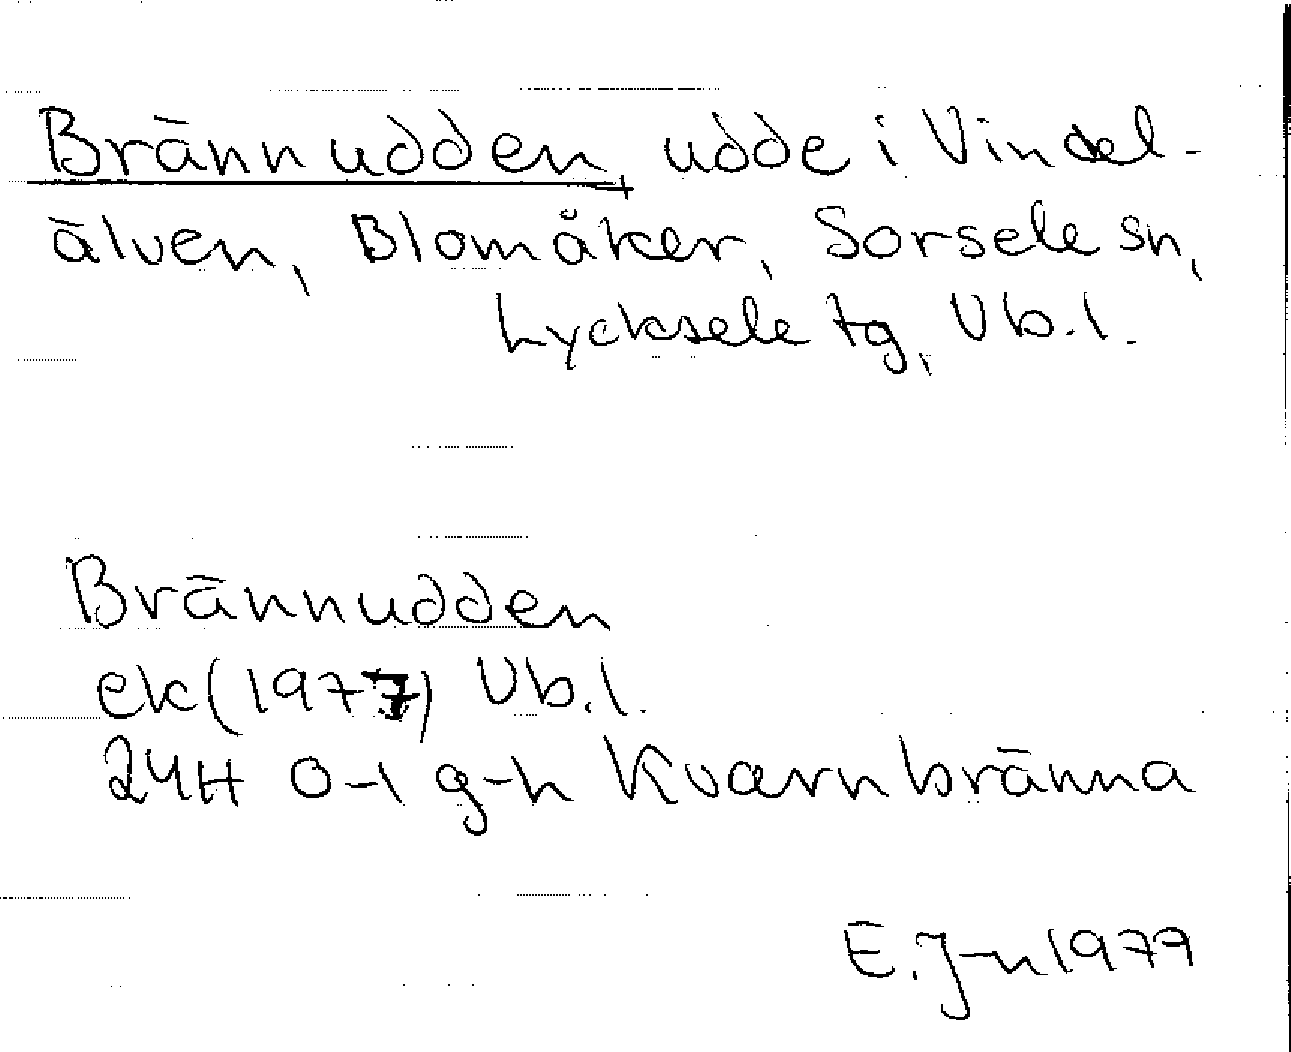 Brännudden, udde i Vindel-
älven, Blomåker, Sorsele sn,
Lycksele tg, Vb.l.
Brännudden
ek(1977) Vb.l.
24H 0-1 g-h Kvarnbränna
E.J-n 1977